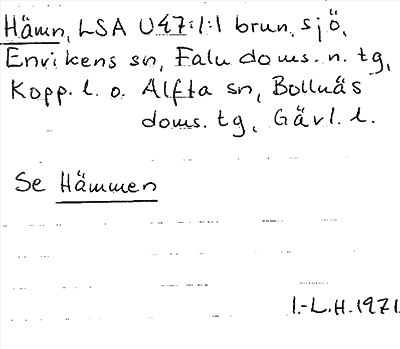 Hämn, LSA U47:1:1 brun, sjö,
Envikens sn, Falu doms. n. tg,
Kopp. l. o. Alfta sn, Bollnäs
doms. tg, Gävl. l.
Se Hämmen
I.-L.H.1971